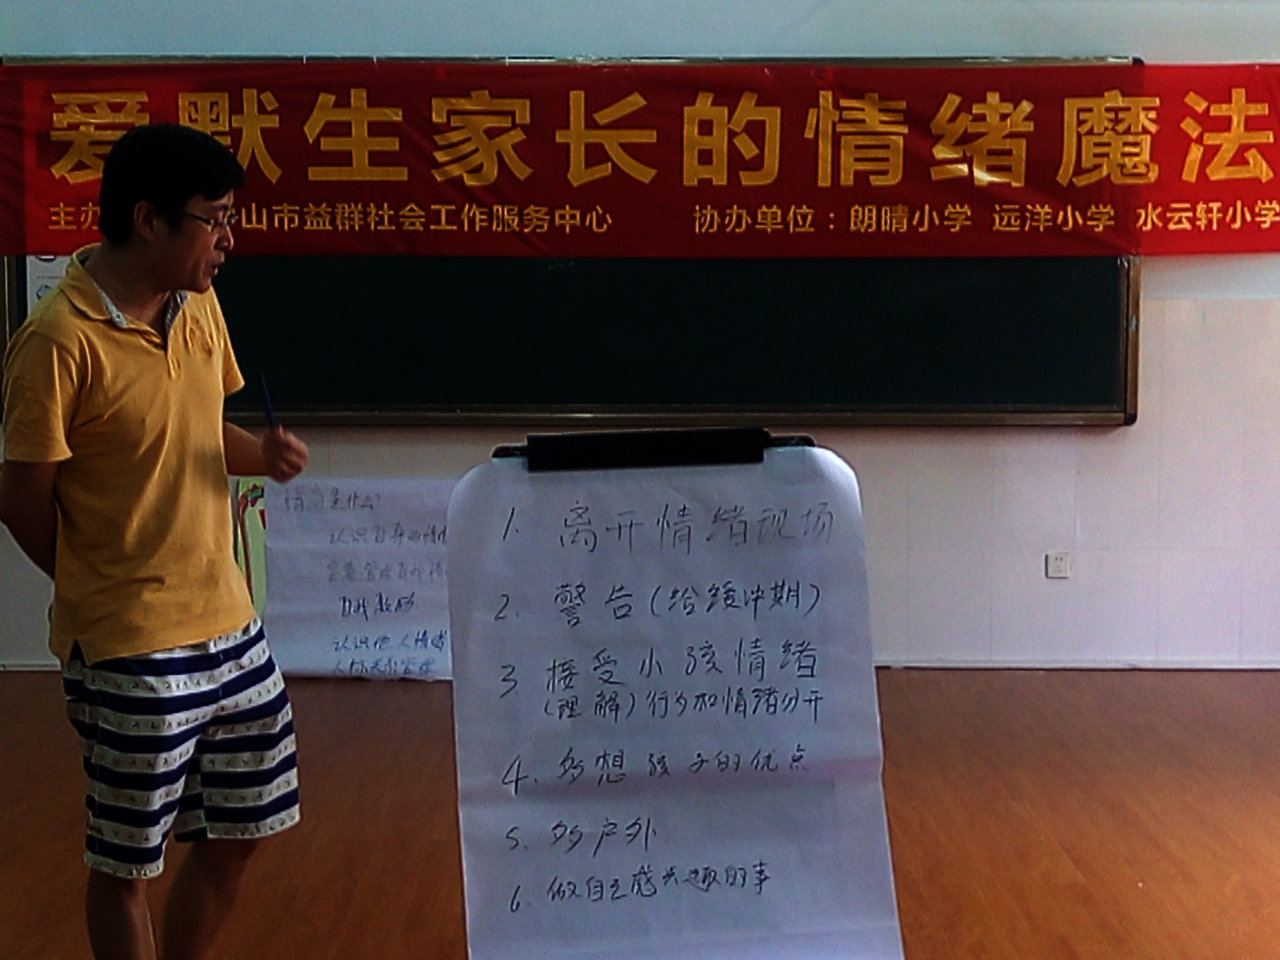 爱默生家长的情绪魔法
主办 山市益群社会工作服务中心 协办单位：朗晴小学 远洋小学 水云轩小学
情商是什么?
认识自身的情
自我激励
认识他人情绪
人际关系管理
1. 离开情绪现场
2. 警告(给缓冲期)
3 接受小孩情绪
(理解)行为和情绪分开
4. 多想孩子的优点
5. 多户外
6. 做自己感兴趣的事